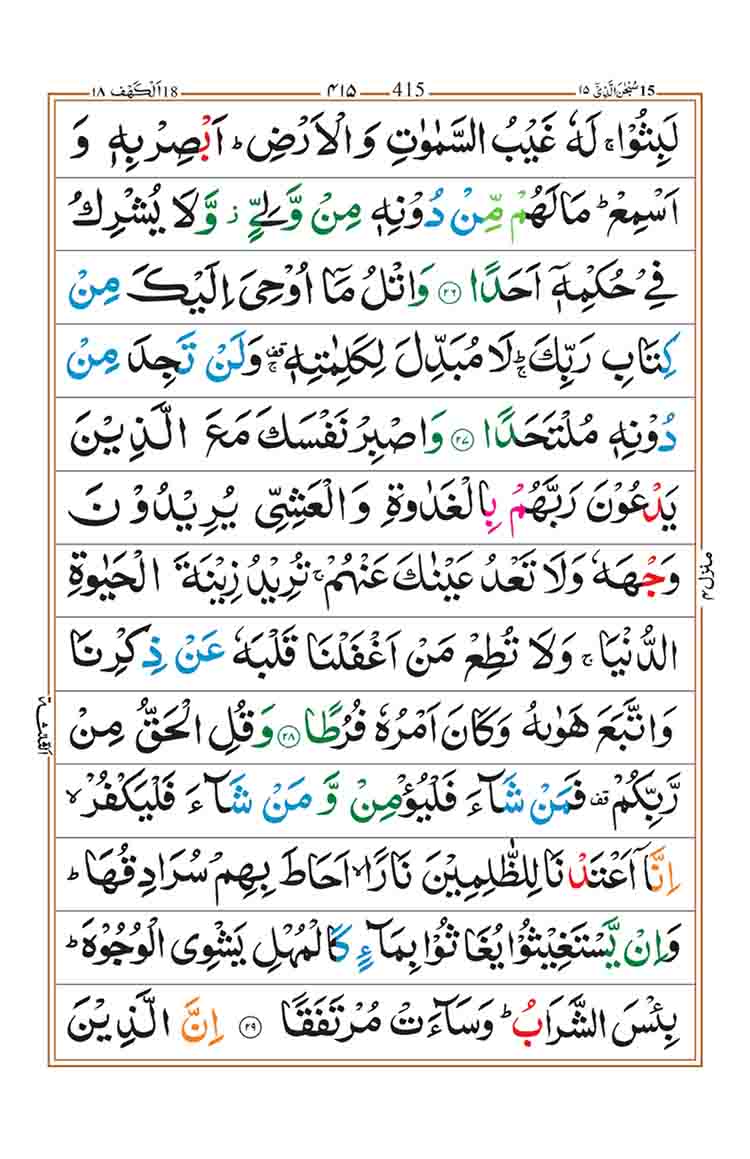 15 سُبْحٰنَ الَّذِيْۤ ۱۵ 415 ۴۱۵ 18 اَلْكَهْف ۱۸
لَبِثُوْا ۚ لَهٗ غَيْبُ السَّمٰوٰتِ وَ الْاَرْضِ ؕ اَبْصِرْ بِهٖ وَ
اَسْمِعْ ؕ مَا لَهُمْ مِّنْ دُوْنِهٖ مِنْ وَّلِيٍّ ز وَّ لَا يُشْرِكُ
فِيْ حُكْمِهٖۤ اَحَدًا ۲۶ وَ اتْلُ مَاۤ اُوْحِيَ اِلَيْكَ مِنْ
كِتَابِ رَبِّكَ ؕۚ لَا مُبَدِّلَ لِكَلِمٰتِهٖ ۚقف وَ لَنْ تَجِدَ مِنْ
دُوْنِهٖ مُلْتَحَدًا ۲۷ وَ اصْبِرْ نَفْسَكَ مَعَ الَّذِيْنَ
يَدْعُوْنَ رَبَّهُمْ بِالْغَدٰوةِ وَ الْعَشِيِّ يُرِيْدُوْنَ
وَجْهَهٗ وَ لَا تَعْدُ عَيْنٰكَ عَنْهُمْ ۚ تُرِيْدُ زِيْنَةَ الْحَيٰوةِ
الدُّنْيَا ۚ وَ لَا تُطِعْ مَنْ اَغْفَلْنَا قَلْبَهٗ عَنْ ذِكْرِنَا
وَ اتَّبَعَ هَوٰىهُ وَ كَانَ اَمْرُهٗ فُرُطًا ۲۸ وَ قُلِ الْحَقُّ مِنْ
رَّبِّكُمْ قف فَمَنْ شَآءَ فَلْيُؤْمِنْ وَّ مَنْ شَآءَ فَلْيَكْفُرْ ۙ
اِنَّاۤ اَعْتَدْنَا لِلظّٰلِمِيْنَ نَارًا ۙ اَحَاطَ بِهِمْ سُرَادِقُهَا ؕ
وَ اِنْ يَّسْتَغِيْثُوْا يُغَاثُوْا بِمَآءٍ كَالْمُهْلِ يَشْوِي الْوُجُوْهَ ؕ
بِئْسَ الشَّرَابُ ؕ وَ سَآءَتْ مُرْتَفَقًا ۲۹ اِنَّ الَّذِيْنَ
منزل ۴
الثلثة